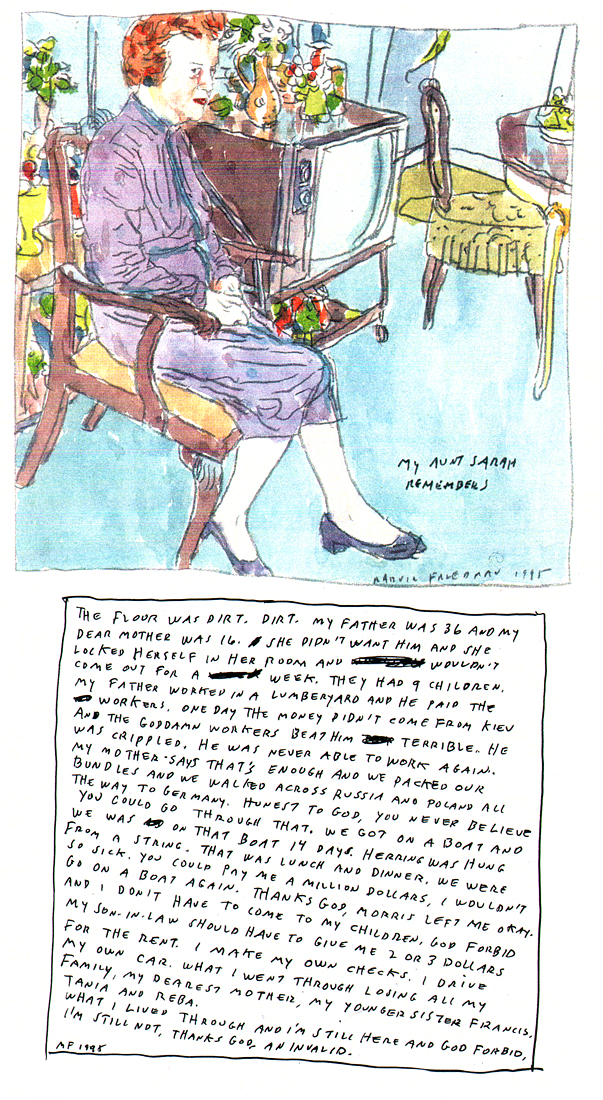 MY AUNT SARAH
REMEMBERS
MARVIN FRIEDMAN 1995
THE FLOOR WAS DIRT. DIRT. MY FATHER WAS 36 AND MY
DEAR MOTHER WAS 16. SHE DIDN'T WANT HIM AND SHE
LOCKED HERSELF IN HER ROOM AND WOULDN'T
COME OUT FOR A WEEK. THEY HAD 9 CHILDREN.
MY FATHER WORKED IN A LUMBERYARD AND HE PAID THE
WORKERS. ONE DAY THE MONEY DIDN'T COME FROM KIEV
AND THE GODDAMN WORKERS BEAT HIM TERRIBLE. HE
WAS CRIPPLED. HE WAS NEVER ABLE TO WORK AGAIN.
MY MOTHER SAYS THAT'S ENOUGH AND WE PACKED OUR
BUNDLES AND WE WALKED ACROSS RUSSIA AND POLAND ALL
THE WAY TO GERMANY. HONEST TO GOD, YOU NEVER BELIEVE
YOU COULD GO THROUGH THAT. WE GOT ON A BOAT AND
WE WAS ON THAT BOAT 14 DAYS. HERRING WAS HUNG
FROM A STRING. THAT WAS LUNCH AND DINNER. WE WERE
SO SICK. YOU COULD PAY ME A MILLION DOLLARS, I WOULDN'T
GO ON A BOAT AGAIN. THANKS GOD, MORRIS LEFT ME OKAY.
AND I DON'T HAVE TO COME TO MY CHILDREN, GOD FORBID
MY SON-IN-LAW SHOULD HAVE TO GIVE ME 2 OR 3 DOLLARS
FOR THE RENT. I MAKE MY OWN CHECKS. I DRIVE
MY OWN CAR. WHAT I WENT THROUGH LOSING ALL MY
FAMILY, MY DEAREST MOTHER, MY YOUNGER SISTER FRANCIS,
TANIA AND REBA.
WHAT I LIVED THROUGH AND I'M STILL HERE AND GOD FORBID,
I'M STILL NOT, THANKS GOD, AN INVALID.
MF 1995